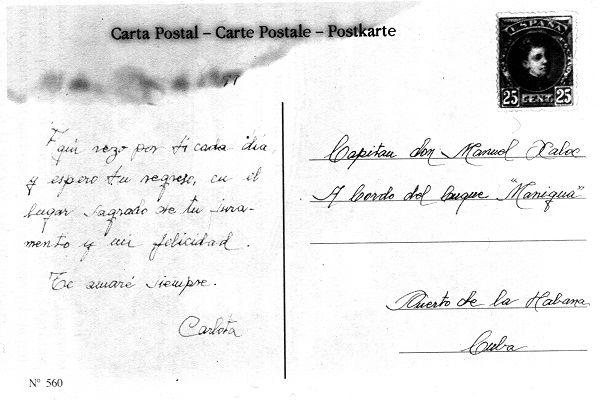 Carta Postal – Carte Postale – Postkarte
ESPAÑA
25 CENT. 25
Aquí rezo por ti cada día,
y espero tu regreso, en el
lugar sagrado de tu jura-
mento y mi felicidad.
Te amaré siempre.
Carlota
Capitan don Manuel Xaloc
A bordo del buque "Manigua"
Puerto de la Habana
Cuba
Nº 560